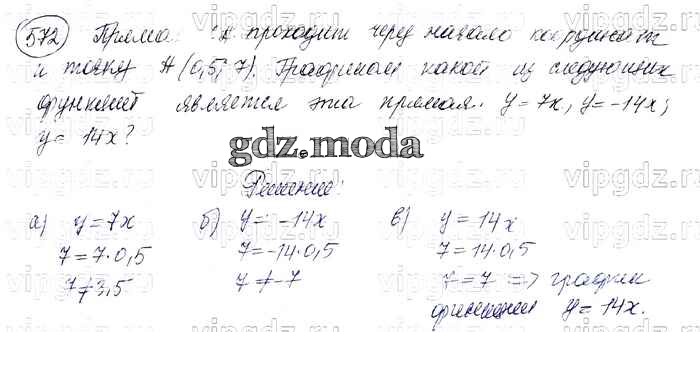 572 Прямая проходит через начало координат
и точку А (0,5; 7). Графиком какой из следующих
функций является эта прямая. y = 7x, y = -14x;
y = 14x?
gdz.moda
Решение:
а) y = 7x б) y = -14x в) y = 14x
7 = 7·0,5 7 = -14·0,5 7 = 14·0,5
7 ≠ 3,5 7 ≠ -7 7 = 7 => график
функции y = 14x.
vipgdz.com